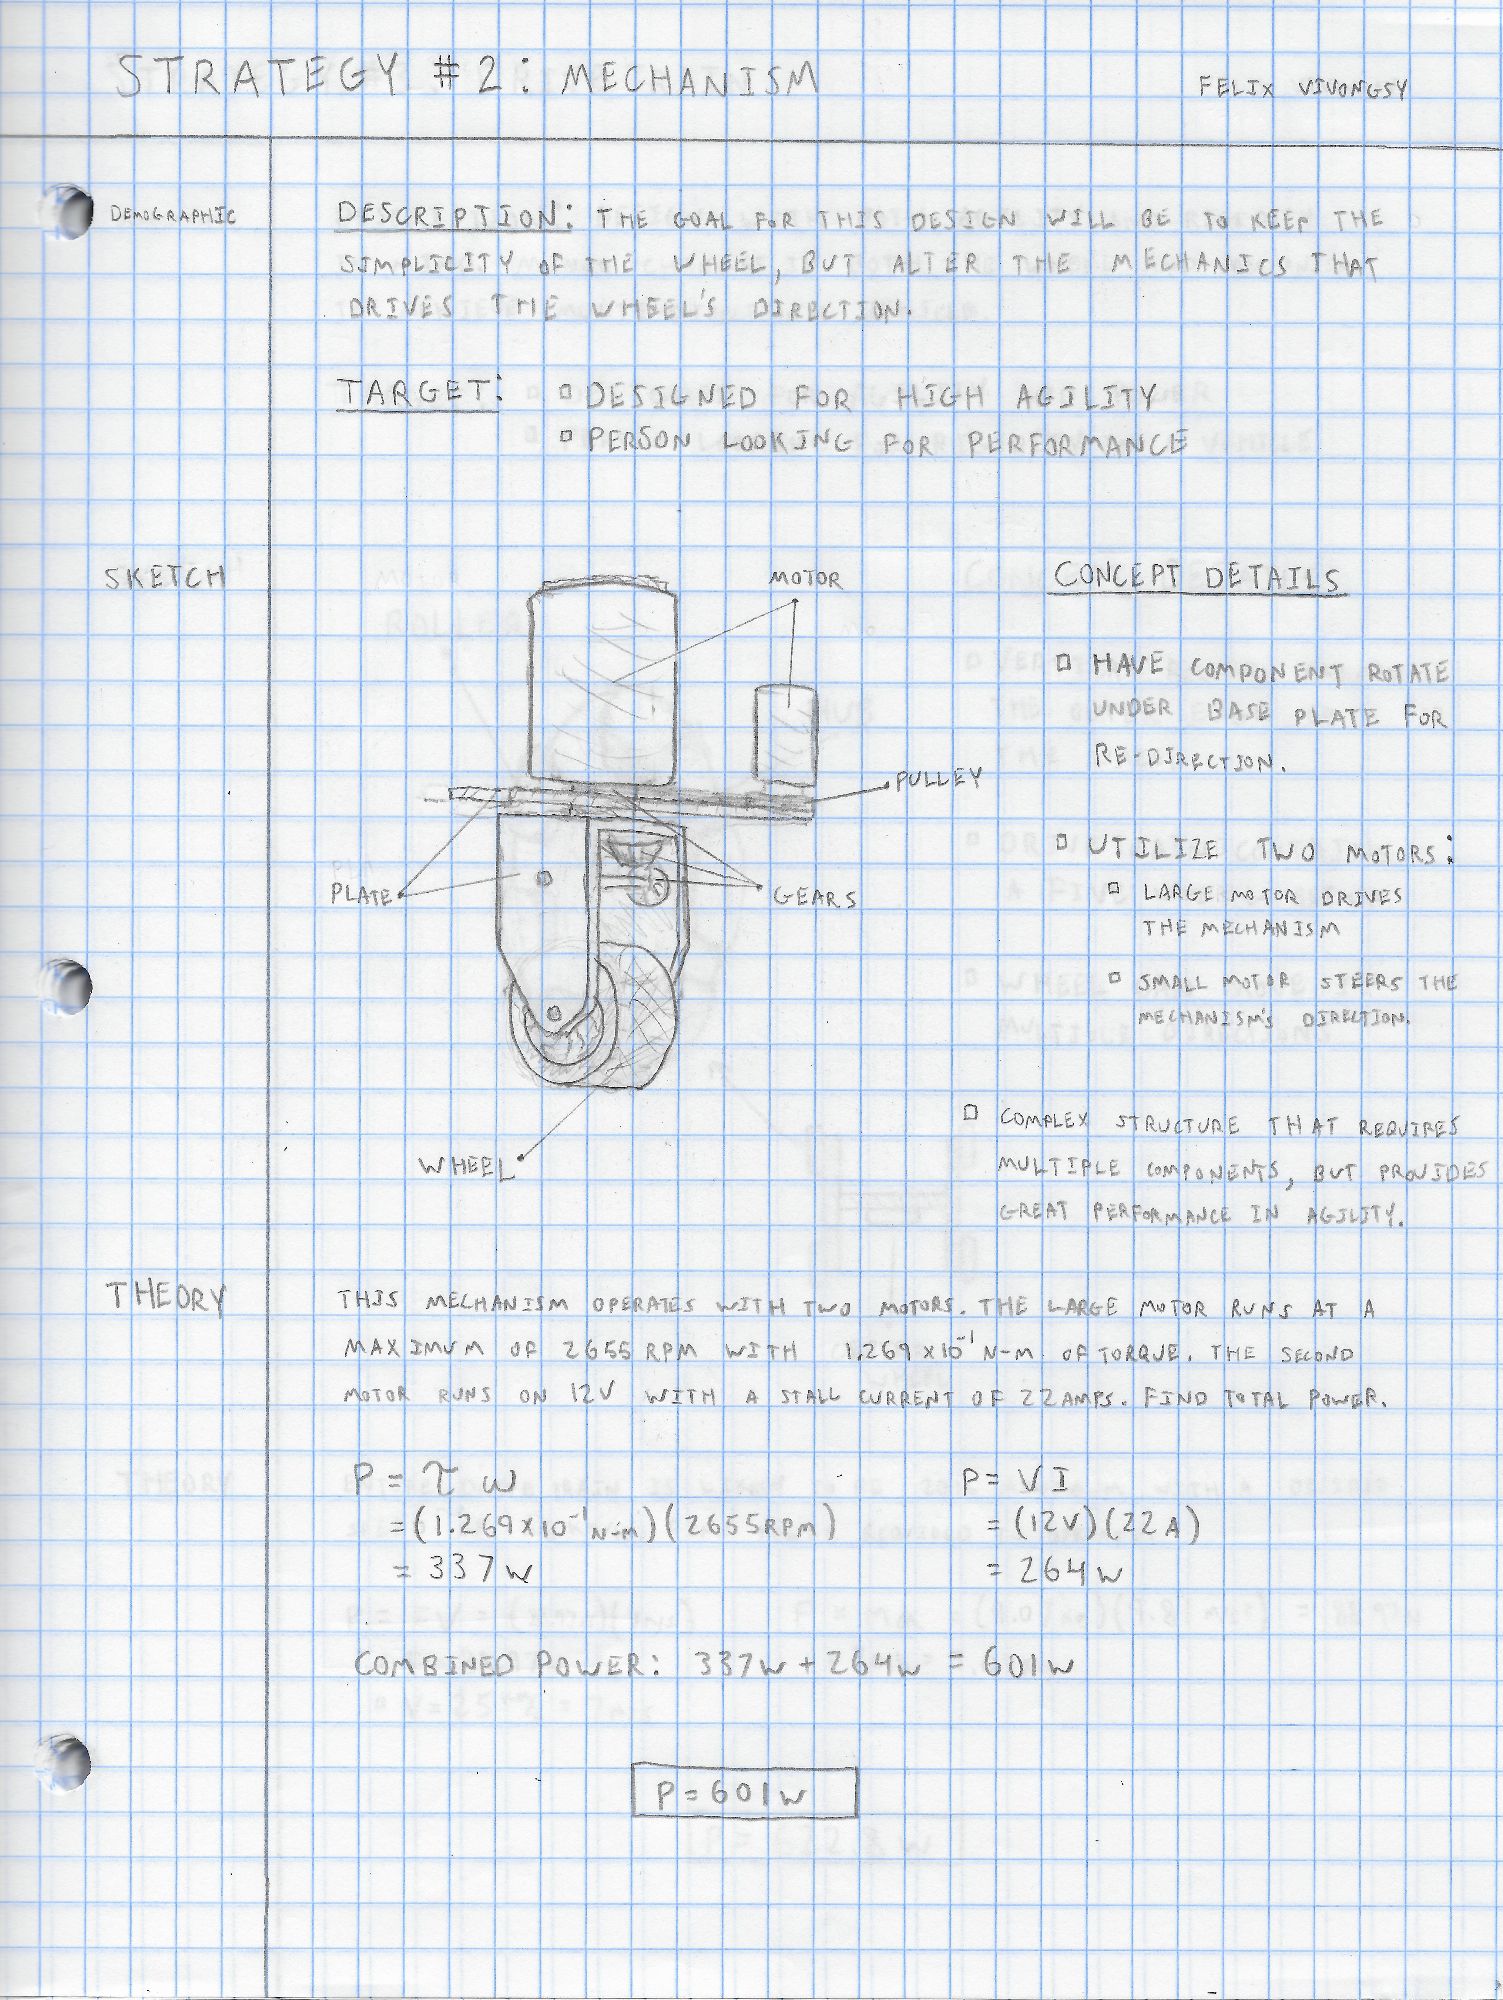 STRATEGY #2: MECHANISM
FELIX VIVONGSY
DEMOGRAPHIC
DESCRIPTION: THE GOAL FOR THIS DESIGN WILL BE TO KEEP THE
SIMPLICITY OF THE WHEEL, BUT ALTER THE MECHANICS THAT
DRIVES THE WHEEL'S DIRECTION.
TARGET: ▫ DESIGNED FOR HIGH AGILITY
▫ PERSON LOOKING FOR PERFORMANCE
SKETCH
MOTOR
PULLEY
PLATE
GEARS
WHEEL
CONCEPT DETAILS
▫ HAVE COMPONENT ROTATE
UNDER BASE PLATE FOR
RE-DIRECTION.
▫ UTILIZE TWO MOTORS:
▫ LARGE MOTOR DRIVES
THE MECHANISM
▫ SMALL MOTOR STEERS THE
MECHANISM'S DIRECTION.
▫ COMPLEX STRUCTURE THAT REQUIRES
MULTIPLE COMPONENTS, BUT PROVIDES
GREAT PERFORMANCE IN AGILITY.
THEORY
THIS MECHANISM OPERATES WITH TWO MOTORS. THE LARGE MOTOR RUNS AT A
MAXIMUM OF 2655 RPM WITH 1.269×10⁻¹ N-M OF TORQUE. THE SECOND
MOTOR RUNS ON 12V WITH A STALL CURRENT OF 22 AMPS. FIND TOTAL POWER.
P = τ ω
= (1.269×10⁻¹ N-m)(2655 RPM)
= 337 W
P = VI
= (12V)(22A)
= 264 W
COMBINED POWER: 337W + 264W = 601W
P = 601W